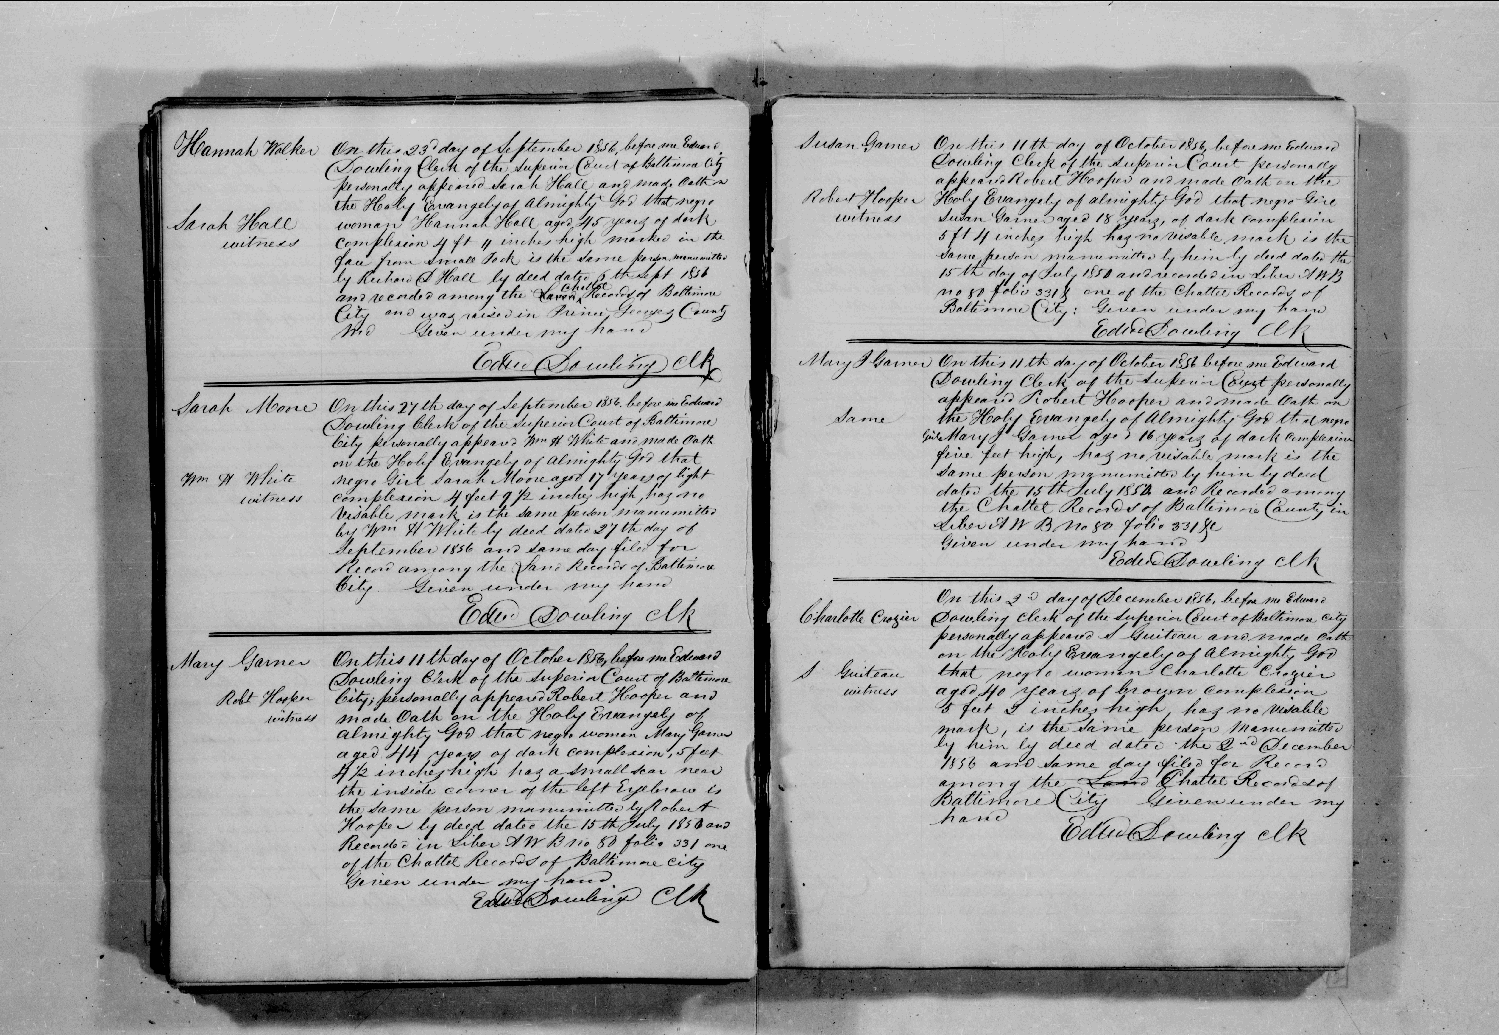 Hannah Walker
On this 23d day of September 1856, before me Edward
Dowling Clerk of the Superior Court of Baltimore City
personally appeared Sarah Hall and made Oath on
the Holy Evangely of Almighty God that negro
Sarah Hall
witness
woman Hannah Hall aged 45 years of dark
complexion 4 ft 11 inches high marked in the
face from Small Pock is the same person manumitted
by Richard S Hall by deed dated 6th Sept 1856
and recorded among the Chattel Records of Baltimore
City and was raised in Prince Georges County
Md Given under my hand
Edwd Dowling Clk
Sarah Moore
On this 27th day of September 1856, before me Edward
Dowling Clerk of the Superior Court of Baltimore
City personally appeared Wm H White and made Oath
on the Holy Evangely of Almighty God that
Wm H White
witness
Negro Girl Sarah Moore aged 17 years of light
complexion 4 feet 9 1/2 inches high, has no
visable mark is the same person manumitted
by Wm H White by deed dated 27th day of
September 1856 and same day filed for
Record among the Land Records of Baltimore
City. Given under my hand
Edwd Dowling Clk
Mary Garner
On this 11th day of October 1856, before me Edward
Dowling Clerk of the Superior Court of Baltimore
Robt Hooper
witness
City, personally appeared Robert Hooper and
made Oath on the Holy Evangely of
Almighty God that negro woman Mary Garner
aged 44 years of dark complexion, 5 feet
4 1/2 inches high has a small scar near
the inside corner of the left Eyebrow is
the same person manumitted by Robert
Hooper by deed dated the 15th July 1850 and
Recorded in Liber A W B no 80 folio 331 one
of the Chattel Records of Baltimore City
Given under my hand
Edwd Dowling Clk
Susan Garner
On this 11th day of October 1856, before me Edward
Dowling Clerk of the Superior Court personally
appeared Robert Hooper and made Oath on the
Robert Hooper
witness
Holy Evangely of Almighty God that negro Girl
Susan Garner aged 18 years, of dark complexion
5 ft 4 inches high has no visable mark is the
same person manumitted by him by deed dated the
15th day of July 1850 and recorded in Liber A W B
no 80 folio 331 & one of the Chattel Records of
Baltimore City: Given under my hand
Edwd Dowling Clk
Mary J Garner
On this 11th day of October 1856 before me Edward
Dowling Clerk of the Superior Court personally
appeared Robert Hooper and made Oath on
Same
the Holy Evangely of Almighty God that negro
Girl Mary J Garner aged 16 years of dark complexion
five feet high, has no visable mark is the
same person manumitted by him by deed
dated the 15th July 1850 and Recorded among
the Chattel Records of Baltimore County in
Liber A W B no 80 folio 331 &c
Given under my hand
Edwd Dowling Clk
Charlotte Crozier
On this 2d day of December 1856, before me Edward
Dowling Clerk of the Superior Court of Baltimore City
personally appeared S Guiteau and made Oath
on the Holy Evangely of Almighty God
S Guiteau
witness
that negro woman Charlotte Crozier
aged 40 years of brown complexion
5 feet 2 inches high, has no visable
mark, is the same person manumitted
by him by deed dated the 2nd December
1856 and same day filed for Record
among the Land Chattel Records of
Baltimore City Given under my
hand
Edwd Dowling Clk